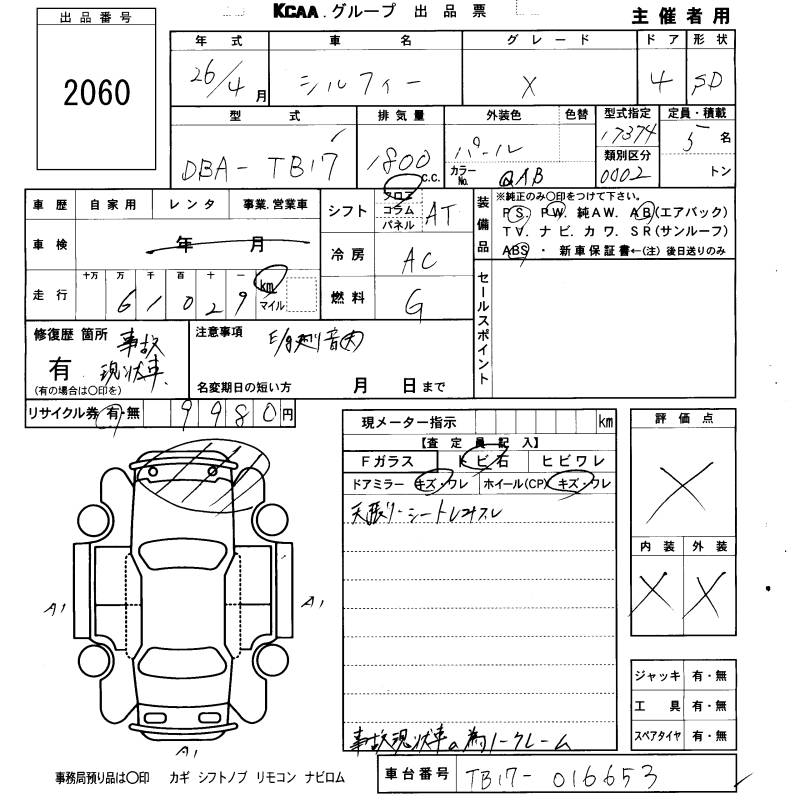 KCAA.グループ 出品票
主催者用
出品番号
2060
年式 車名 グレード ドア 形状
26/4月 シルフィー X 4 SD
型式 排気量 外装色 色替 型式指定 定員・積載
DBA-TB17 1800c.c. パール 17374 5名
カラーNo. QAB 類別区分 0002 トン
車歴 自家用 レンタ 事業.営業車
車検 年 月
走行 十万 万 千 百 十 一 km マイル
61029
シフト フロア コラム パネル AT
冷房 AC
燃料 G
装備品
※純正のみ〇印をつけて下さい。
PS. PW. 純AW. AB(エアバック)
TV. ナビ. カワ. SR(サンルーフ)
ABS ・ 新車保証書←(注) 後日送りのみ
セールスポイント
修復歴 箇所 事故現状車
有
(有の場合は〇印を)
注意事項 E/g廻り音大
名変期日の短い方 月 日まで
リサイクル券 有・無 9980円
現メーター指示 km
【査定員記入】
Fガラス トビ石 ヒビワレ
ドアミラー キズ・ワレ ホイール(CP) キズ・ワレ
天張リーシートヒョス
事故現状車の為ノークレーム
評価点
X
内装 外装
X X
A1
A1
A1
ジャッキ 有・無
工具 有・無
スペアタイヤ 有・無
事務局預り品は〇印 カギ シフトノブ リモコン ナビロム
車台番号 TB17-016653